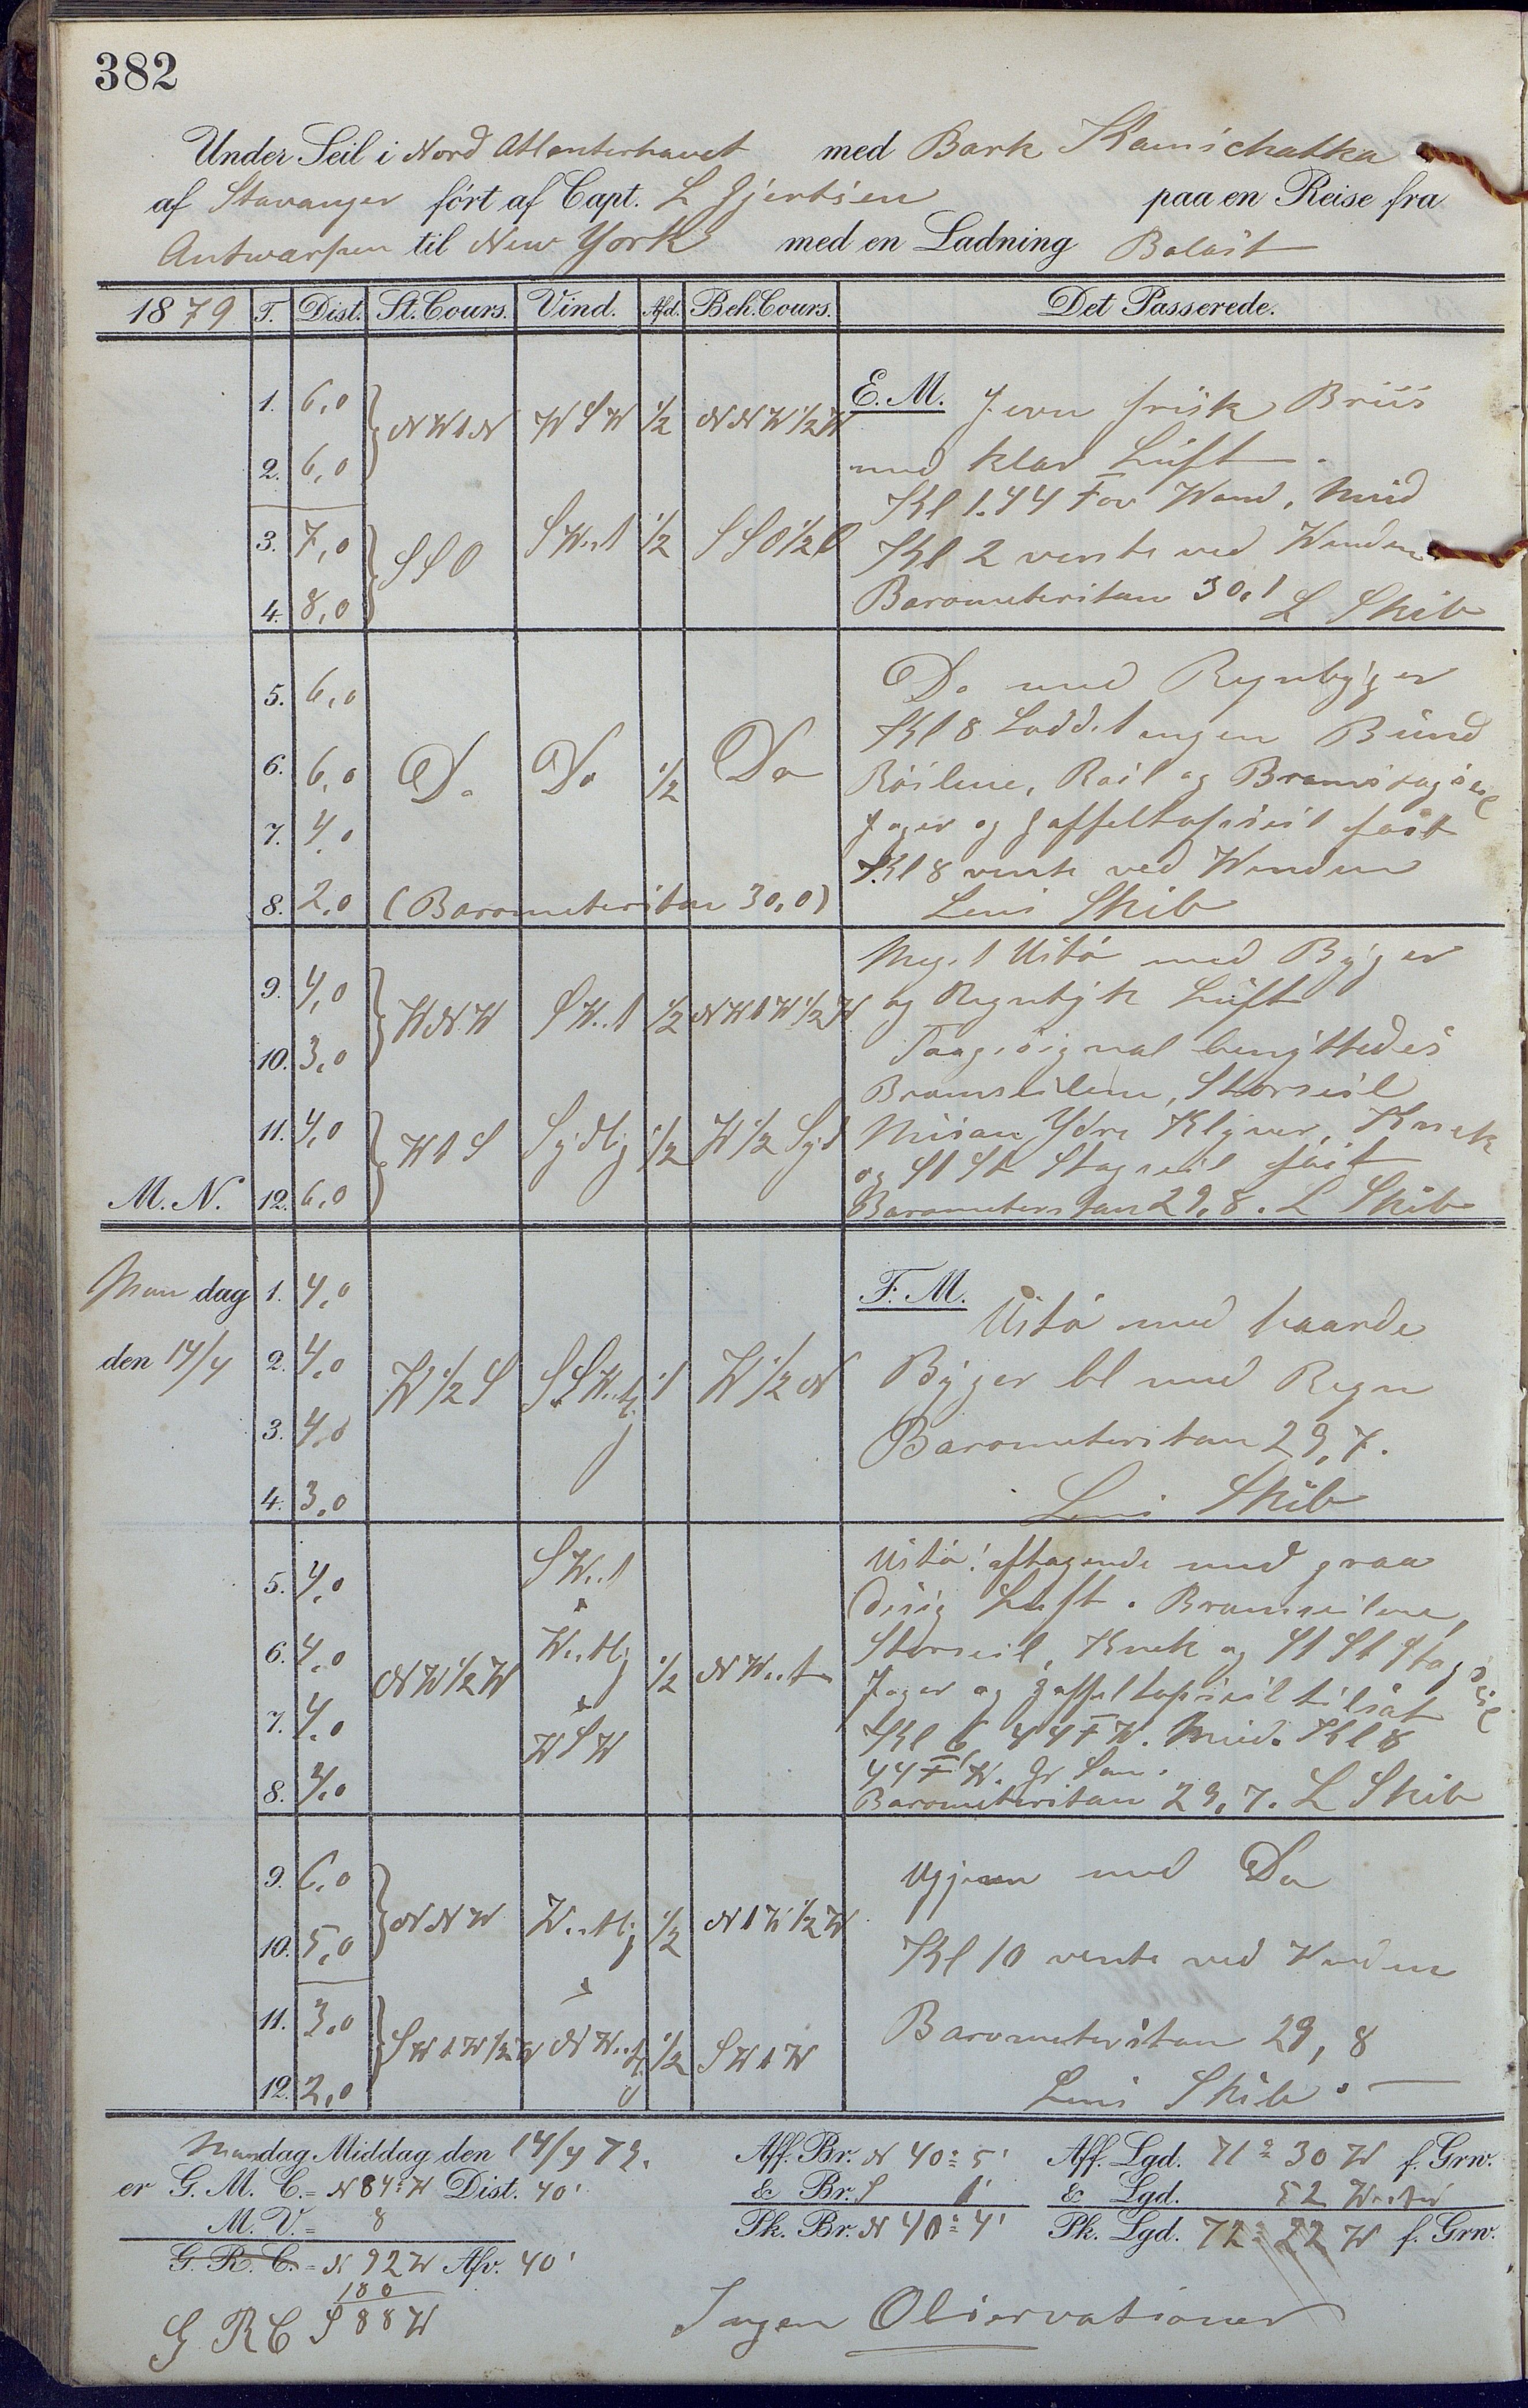 382
Under Seil i Nord Atlanterhavet med Bark Kamschatka
af Stavanger fört af Capt. L Gjertsen paa en Reise fra
Antwarpen til New York med en Ladning Balast
1879 T. Dist. St. Cours. Vind. Afd. Beh. Cours. Det Passerede.
1. 6,0 NWtN WSW 1/2 NNW 1/2 W E. M. Jevn frisk Briis
2. 6,0 med klar Luft.
Kl 1.44 F ov Wand. Mid
3. 7,0 SSO SWest 1/2 SSO 1/2 O Kl 2 vente ved Winden
4. 8,0 Barometerstan 30,1 L Skib
5. 6,0 Do med Regnbyger
Kl 8 Loddet ingen Bund
6. 6,0 Do Do 1/2 Do Röilene, Roil og Bramstagseil
7. 4,0 Jager og Gaffeltopseil fast
Kl 8 vente ved Winden
8. 2,0 (Barometerstan 30,0) Lens Skib
Meget Ustö med Byger
9. 4,0 WNW SWest 1/2 NWtW 1/2 W og Regntyk Luft
10. 3,0 Taagesignal benyttedes
Bramseilene, Storseil
11. 4,0 WtS Sydlig 1/2 W 1/2 Syd Misan Ydre Klyver, Knek
og St St Stagseil fast
M. N. 12. 6,0 Barometerstan 29,8. L Skib
Mandag 1. 4,0 F. M.
Ustö med haarde
den 14/4 2. 4,0 W 1/2 S SSWestlig 1 W 1/2 N Byger bl med Regn
3. 4,0 Barometerstan 29,7.
4. 3,0 Lens Skib
5. 4,0 SWest Ustö! aftagende med graa
disig Luft. Bramseilene,
6. 4,0 NW 1/2 W Westlig 1/2 NWest Storseil, Knek og St St Stagseil
Jager og Gaffeltopseil tilsat
7. 4,0 WSW Kl 6 44 F W. Mid. Kl 8
44 F W. Gr
8. 4,0 Barometerstan 29,7. L Skib
9. 6,0 Ujevn med Do
10. 5,0 NNW Westlig 1/2 NtW 1/2 W
Kl 10 vente ved Vinden
11. 3,0 SWtW 1/2 W NWestlig 1/2 SWtW Barometerstan 29,8
12. 2,0 Lens Skib.
Mandag Middag den 14/4 79. Aff. Br. N 40° 5' Aff. Lgd. 71° 30 W f. Grw.
er G. M. C. = N 84° W Dist. 40' & Br. S 1' & Lgd. 52 Westen
M. V. = 8 Pk. Br. N 40° 4' Pk. Lgd. 72° 22 W f. Grw.
G. R. C. = N 92 W Afv. 40'
180
G R C S 88 W Ingen Observationer